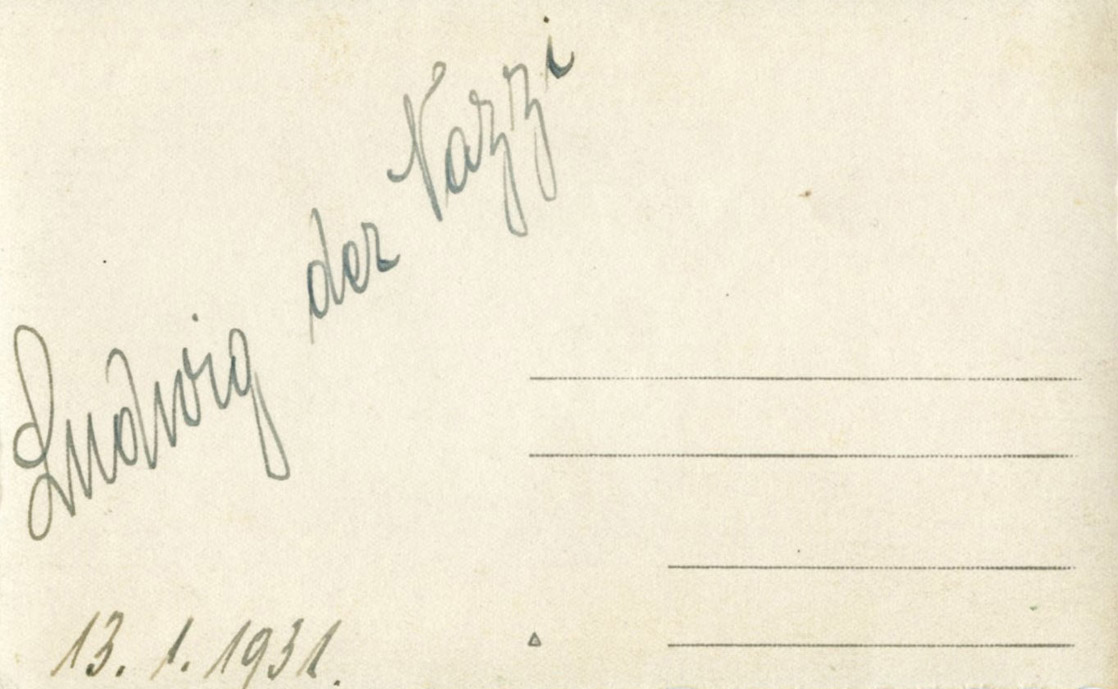 Ludwig der Nazzi
13. 1. 1931.